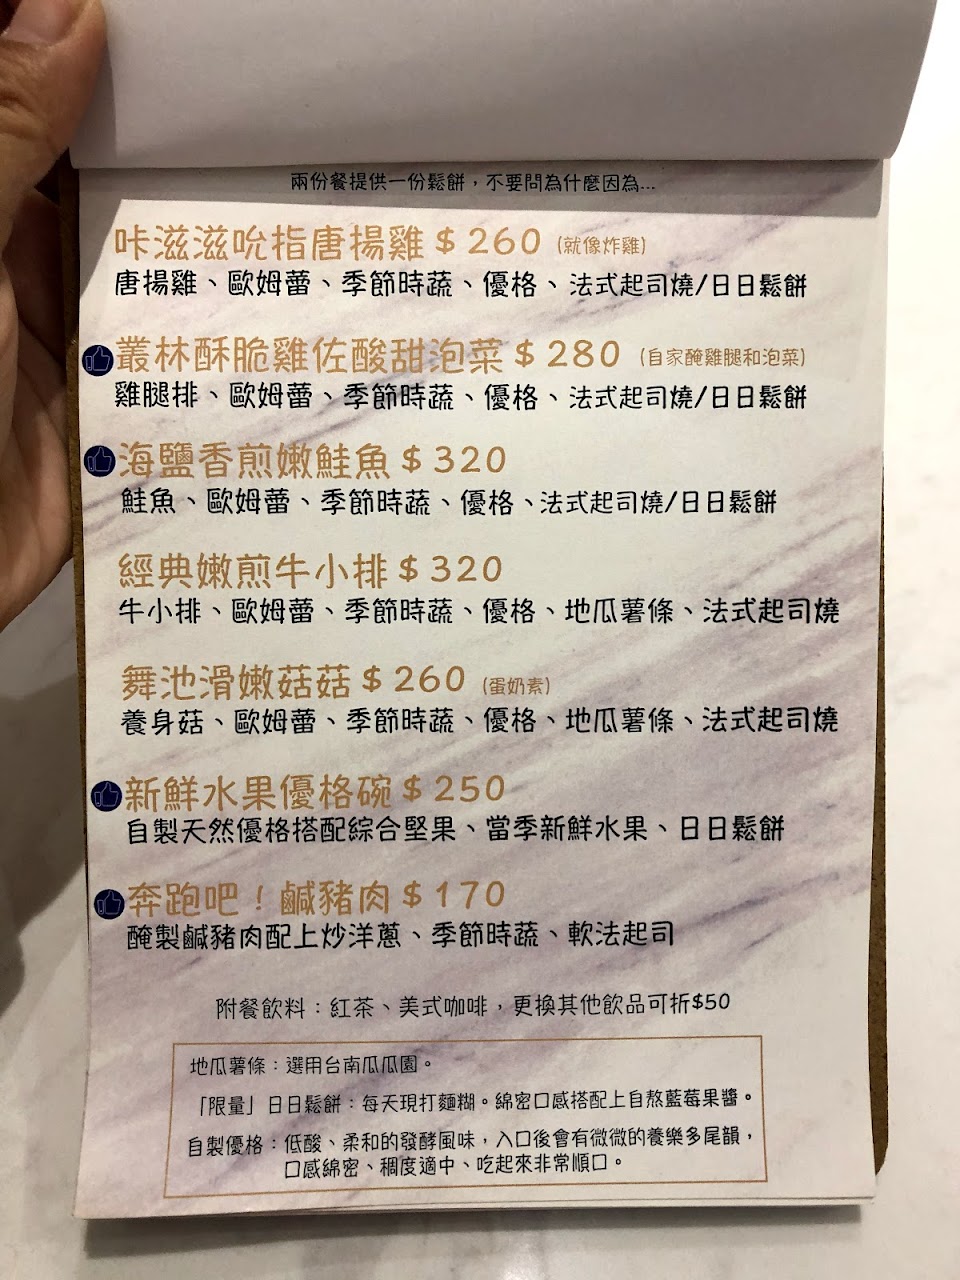 兩份餐提供一份鬆餅，不要問為什麼因為...
咔滋滋吮指唐揚雞 $ 260 (就像炸雞)
唐揚雞、歐姆蕾、季節時蔬、優格、法式起司燒/日日鬆餅
叢林酥脆雞佐酸甜泡菜 $ 280 (自家醃雞腿和泡菜)
雞腿排、歐姆蕾、季節時蔬、優格、法式起司燒/日日鬆餅
海鹽香煎嫩鮭魚 $ 320
鮭魚、歐姆蕾、季節時蔬、優格、法式起司燒/日日鬆餅
經典嫩煎牛小排 $ 320
牛小排、歐姆蕾、季節時蔬、優格、地瓜薯條、法式起司燒
舞池滑嫩菇菇 $ 260 (蛋奶素)
養身菇、歐姆蕾、季節時蔬、優格、地瓜薯條、法式起司燒
新鮮水果優格碗 $ 250
自製天然優格搭配綜合堅果、當季新鮮水果、日日鬆餅
奔跑吧！鹹豬肉 $ 170
醃製鹹豬肉配上炒洋蔥、季節時蔬、軟法起司
附餐飲料：紅茶、美式咖啡，更換其他飲品可折$50
地瓜薯條：選用台南瓜瓜園。
「限量」日日鬆餅：每天現打麵糊。綿密口感搭配上自熬藍莓果醬。
自製優格：低酸、柔和的發酵風味，入口後會有微微的養樂多尾韻，
口感綿密、稠度適中、吃起來非常順口。